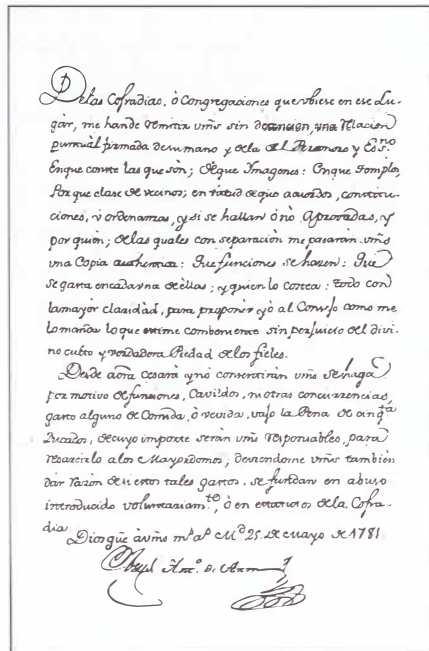 Delas Cofradias, ò Congregaciones que ubiese en ese Lu-
gàr, me hande remitir vm̃s sin detencion, una Relacion
puntuàl firmada desumano y dela del Personero y Ess.no
Enque conste las que sòn; deque Imagenes: Enque Templos,
Porque clase de vecinos; en virtud deque acuerdos, constitu-
ciones, ù ordenanzas, y si se hallan ò nò Aprovadas, y
por quièn; delas quales con separaciòn me pasaràn vm̃s
una Copia authentica: Que funciones se hazen: Que
se gasta encadauna deellas; y quien lo costea: todo con
lamayor claridad, para proponer yò al Consejo como me
lo manda, lo que estime combeniente sin perjuicio del divi-
no culto y verdadera Piedad delos fieles.
Desde aora cesarà y nò consentiràn vm̃s sehaga
por motivo defunciones, Cavildos, niotras concurrencias,
gasto alguno de Comida, ò vevida, vajo la Pena de cinq.ta
Ducados, decuyo importe seràn vm̃s responsables, para
resarcirlo alos Mayordomos; deviendome vm̃s tambièn
dàr razòn de si estos tales gastos, se fundan en abuso
introducido voluntariam.te, ò en estatutos dela Cofra-
dia
Dios güe àvm̃s m.s a.s M.d 25 de Mayo de 1781
Ant.o de